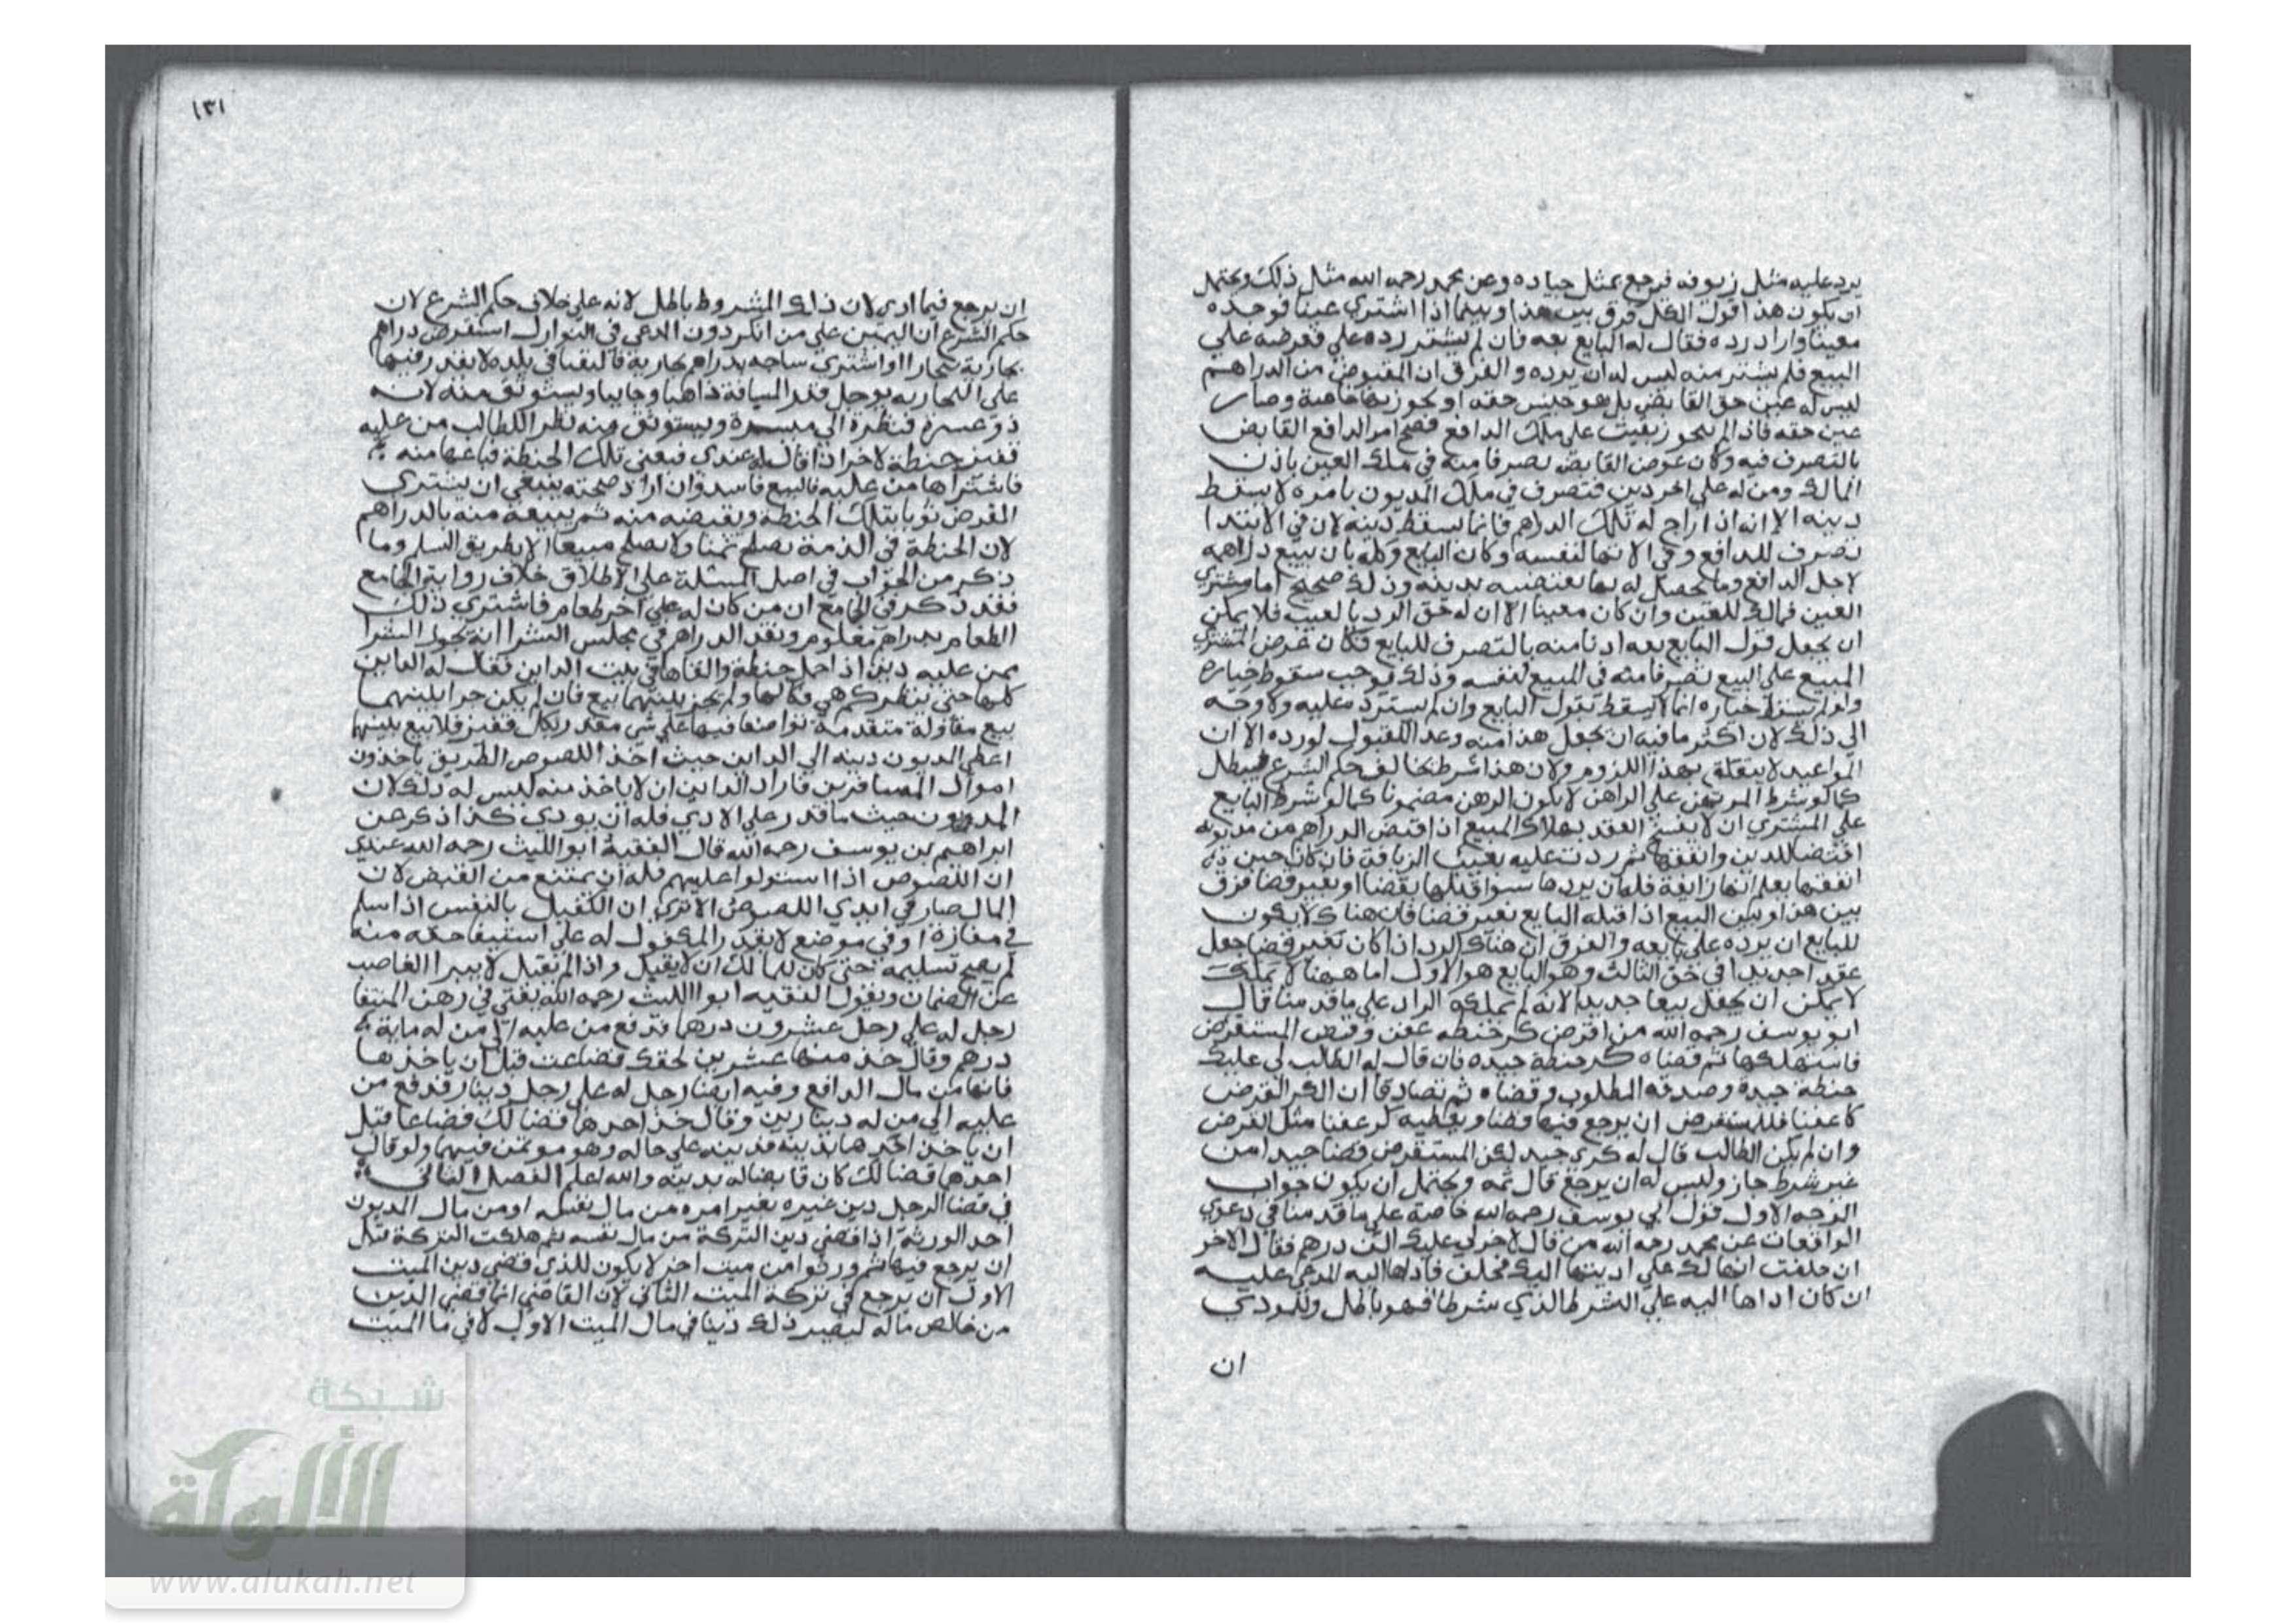 يرد عليه مثل زيوفه فرجع بمثل جياده وعن محمد رحمه الله مثل ذلك ويحتمل
ان يكون هذا قول الكل فرق بين هذا وبينما اذا اشترى عينا فوجده
معيبا واراد رده فقال له البايع بعه فان لم يشتر رده علي فعرضه على
البيع فلم يشتر منه ليس له ان يرده والفرق ان المقبوض من الدراهم
ليس له عين حق القابض بل هو جنس حقه او تجوز بها وصار
عين حقه فاذا لم يتجوز بقيت على ملك الدافع فصح امر الدافع القابض
بالتصرف فيه وكان عرض القابض تصرفا منه في ملك العين باذن
المالك ومن له على اخر دين فتصرف في ملك المديون بامره لا يسقط
دينه الا انه اذا راج له تلك الدراهم فانما يسقط دينه لان في الابتدا
تصرف للدافع وفي الانتها لنفسه وكان البايع وكله بان يبيع دراهمه
لاجل الدافع وما يحصل له بها يقتضيه بدينه وذلك صحيح اما مشتري
العين فمالك للعين وان كان معيبا الا ان له حق الرد بالعيب فلا يمكن
ان يجعل قول البايع بعه اذنا منه بالتصرف للبايع فكان عرض المشتري
المبيع على البيع تصرفا منه في المبيع لنفسه وذلك يوجب سقوط خياره
خياره انما لا يسقط بقول البايع وان لم يشتر رده عليه ولا وجه
الى ذلك لان اكثر ما فيه ان يجعل هذا منه وعدا للقبول لو رده الا ان
المواعيد لا يتعلق بهذا اللزوم ولان هذا شرط يخالف حكم الشرع فيبطل
كما لو شرط المرتهن على الراهن لا يكون الرهن مضمونا كما لو شرط البايع
على المشتري ان لا يفسخ العقد بهلاك المبيع اذا قبض الدراهم من مديونه
اقتضا للدين وانفقها ثم ردت عليه بعيب الزيافة فان كان حين
انفقها يعلم انها زايفة فله ان يردها سوا قبلها بقضا او بغير قضا فرق
بين هذا وبين البيع اذا قبله البايع بغير قضا فان هناك لا يكون
للبايع ان يرده على بايعه والفرق ان هناك الرد اذا كان بغير قضا جعل
عقدا جديدا في حق الثالث وهو البايع هو الاول اما ههنا لا يملك
لا يمكن ان يجعل بيعا جديدا لانه لم يملكه الراد على ما قدمنا قال
ابو يوسف رحمه الله من اقرض كر حنطة عفن وقبض المستقرض
فاستهلكها ثم قضاه كر حنطة جيده فان قال له الطالب لي عليك
حنطة جيدة وصدقه المطلوب وقضاه ثم تصادقا ان الكر القرض
كان عفنا فللمستقرض ان يرجع فيها قضا ويعطيه كر عفنا مثل القرض
وان لم يكن الطالب قال له كري جيد لكن المستقرض قضا جيدا من
غير شرط جاز وليس له ان يرجع قال ثمه ويحتمل ان يكون جواب
الوجه الاول قول ابي يوسف رحمه الله خاصة على ما قدمنا في دعوى
الواقعات عن محمد رحمه الله من قال لاخر لي عليك الف درهم فقال الاخر
ان حلفت انها لك علي اديتها اليك فحلف فاداها اليه المدعى عليه
ان كان اداها اليه على الشرط الذي شرطا فهو باطل وللمودي
ان
١٣١
ان يرجع فيما ادى لان ذلك المشروط باطل لانه على خلاف حكم الشرع لان
حكم الشرع ان اليمين على من انكر دون المدعى في النوازل استقرض دراهم
بخارية ببخارا او اشترى ساجه بدراهم بخارية فالتقيا في بلده لا يقدر فيها
على البخاريه يوجل قدر المسافة ذاهبا وجايبا ويستوثق منه لانه
ذو عسرة فنظرة الى ميسرة ويستوثق منه نظرا للطالب من عليه
قفيز حنطة لاخر اذا قال له عندي فبعني تلك الحنطة فباعها منه
فاشتراها من عليه فالبيع فاسد وان اراد صحته ينبغي ان يشتري
القرض ثوبا بتلك الحنطة ويقبضه منه ثم يبيعه منه بالدراهم
لان الحنطة في الذمة تصلح ثمنا ولا تصلح مبيعا الا بطريق السلم وما
ذكر من الجواب في اصل المسئلة على الاطلاق خلاف رواية الجامع
فقد ذكر في الجامع ان من كان له على اخر طعام فاشترى ذلك
الطعام بدراهم معلوم ونقد الدراهم في مجلس الشرا انه يجوز الشرا
ممن عليه دين اذا حمل حنطة والقاها في بيت الداين فقال له الداين
كلها حتى ننظر كم هي فكالها ولم يجز بينهما بيع فان لم يكن جرا بينهما
بيع مقاولة متقدمة تواضعا فيها على شي مقدر لكل قفيز فلا بيع بينهما
اعطى المديون دينه الى الداين حيث اخذ اللصوص الطريق ياخذون
اموال المسافرين فاراد الداين ان لا ياخذ منه ليس له ذلك لان
المديون حيث ما قدر على الادي فله ان يودي كذا ذكر عن
ابراهيم بن يوسف رحمه الله قال الفقية ابو الليث رحمه الله عندي
ان اللصوص اذا استولوا عليهم فله ان يمتنع من القبض لان
المال صار في ايدي اللصوص الا ترى ان الكفيل بالنفس اذا سلم
في مفازة او في موضع لا يقدر المكفول له على استيفا حقه منه
لم يصح تسليمه حتى كان للمالك ان لا يقبل واذا لم يقبل لا يبرا الغاصب
عن الضمان وبقول الفقيه ابو الليث رحمه الله يفتى في رهن المنتقا
رجل له على رجل عشرون درهما فدفع من عليه الى من له ماية
درهم وقال خذ منها عشرين لحقك فضاعت قبل ان ياخذها
فانها من مال الدافع وفيه ايضا رجل له على رجل دينار فدفع من
عليه الى من له دينارين وقال خذ احدهما قضا لك فضاعا قبل
ان ياخذ احدهما بدينه فدينه على حاله وهو موتمن فيهما ولو قال
احدهما قضا لك كان قابضا له بدينه والله اعلم الفصل الثاني
في قضا الرجل دين غيره بغير امره من مال نفسه او من مال المديون
احد الورثة اذا قضى دين التركة من مال نفسه ثم هلكت التركة قبل
ان يرجع فيها ثم ورثوا من ميت اخر لا يكون للذي قضى دين الميت
الاول ان يرجع في تركة الميت الثاني لان القاضي انما قضى الدين
من خالص ماله ليصير ذلك دينا في مال الميت الاول لا في ما الميت
شبكة
الألوكة
www.alukah.net